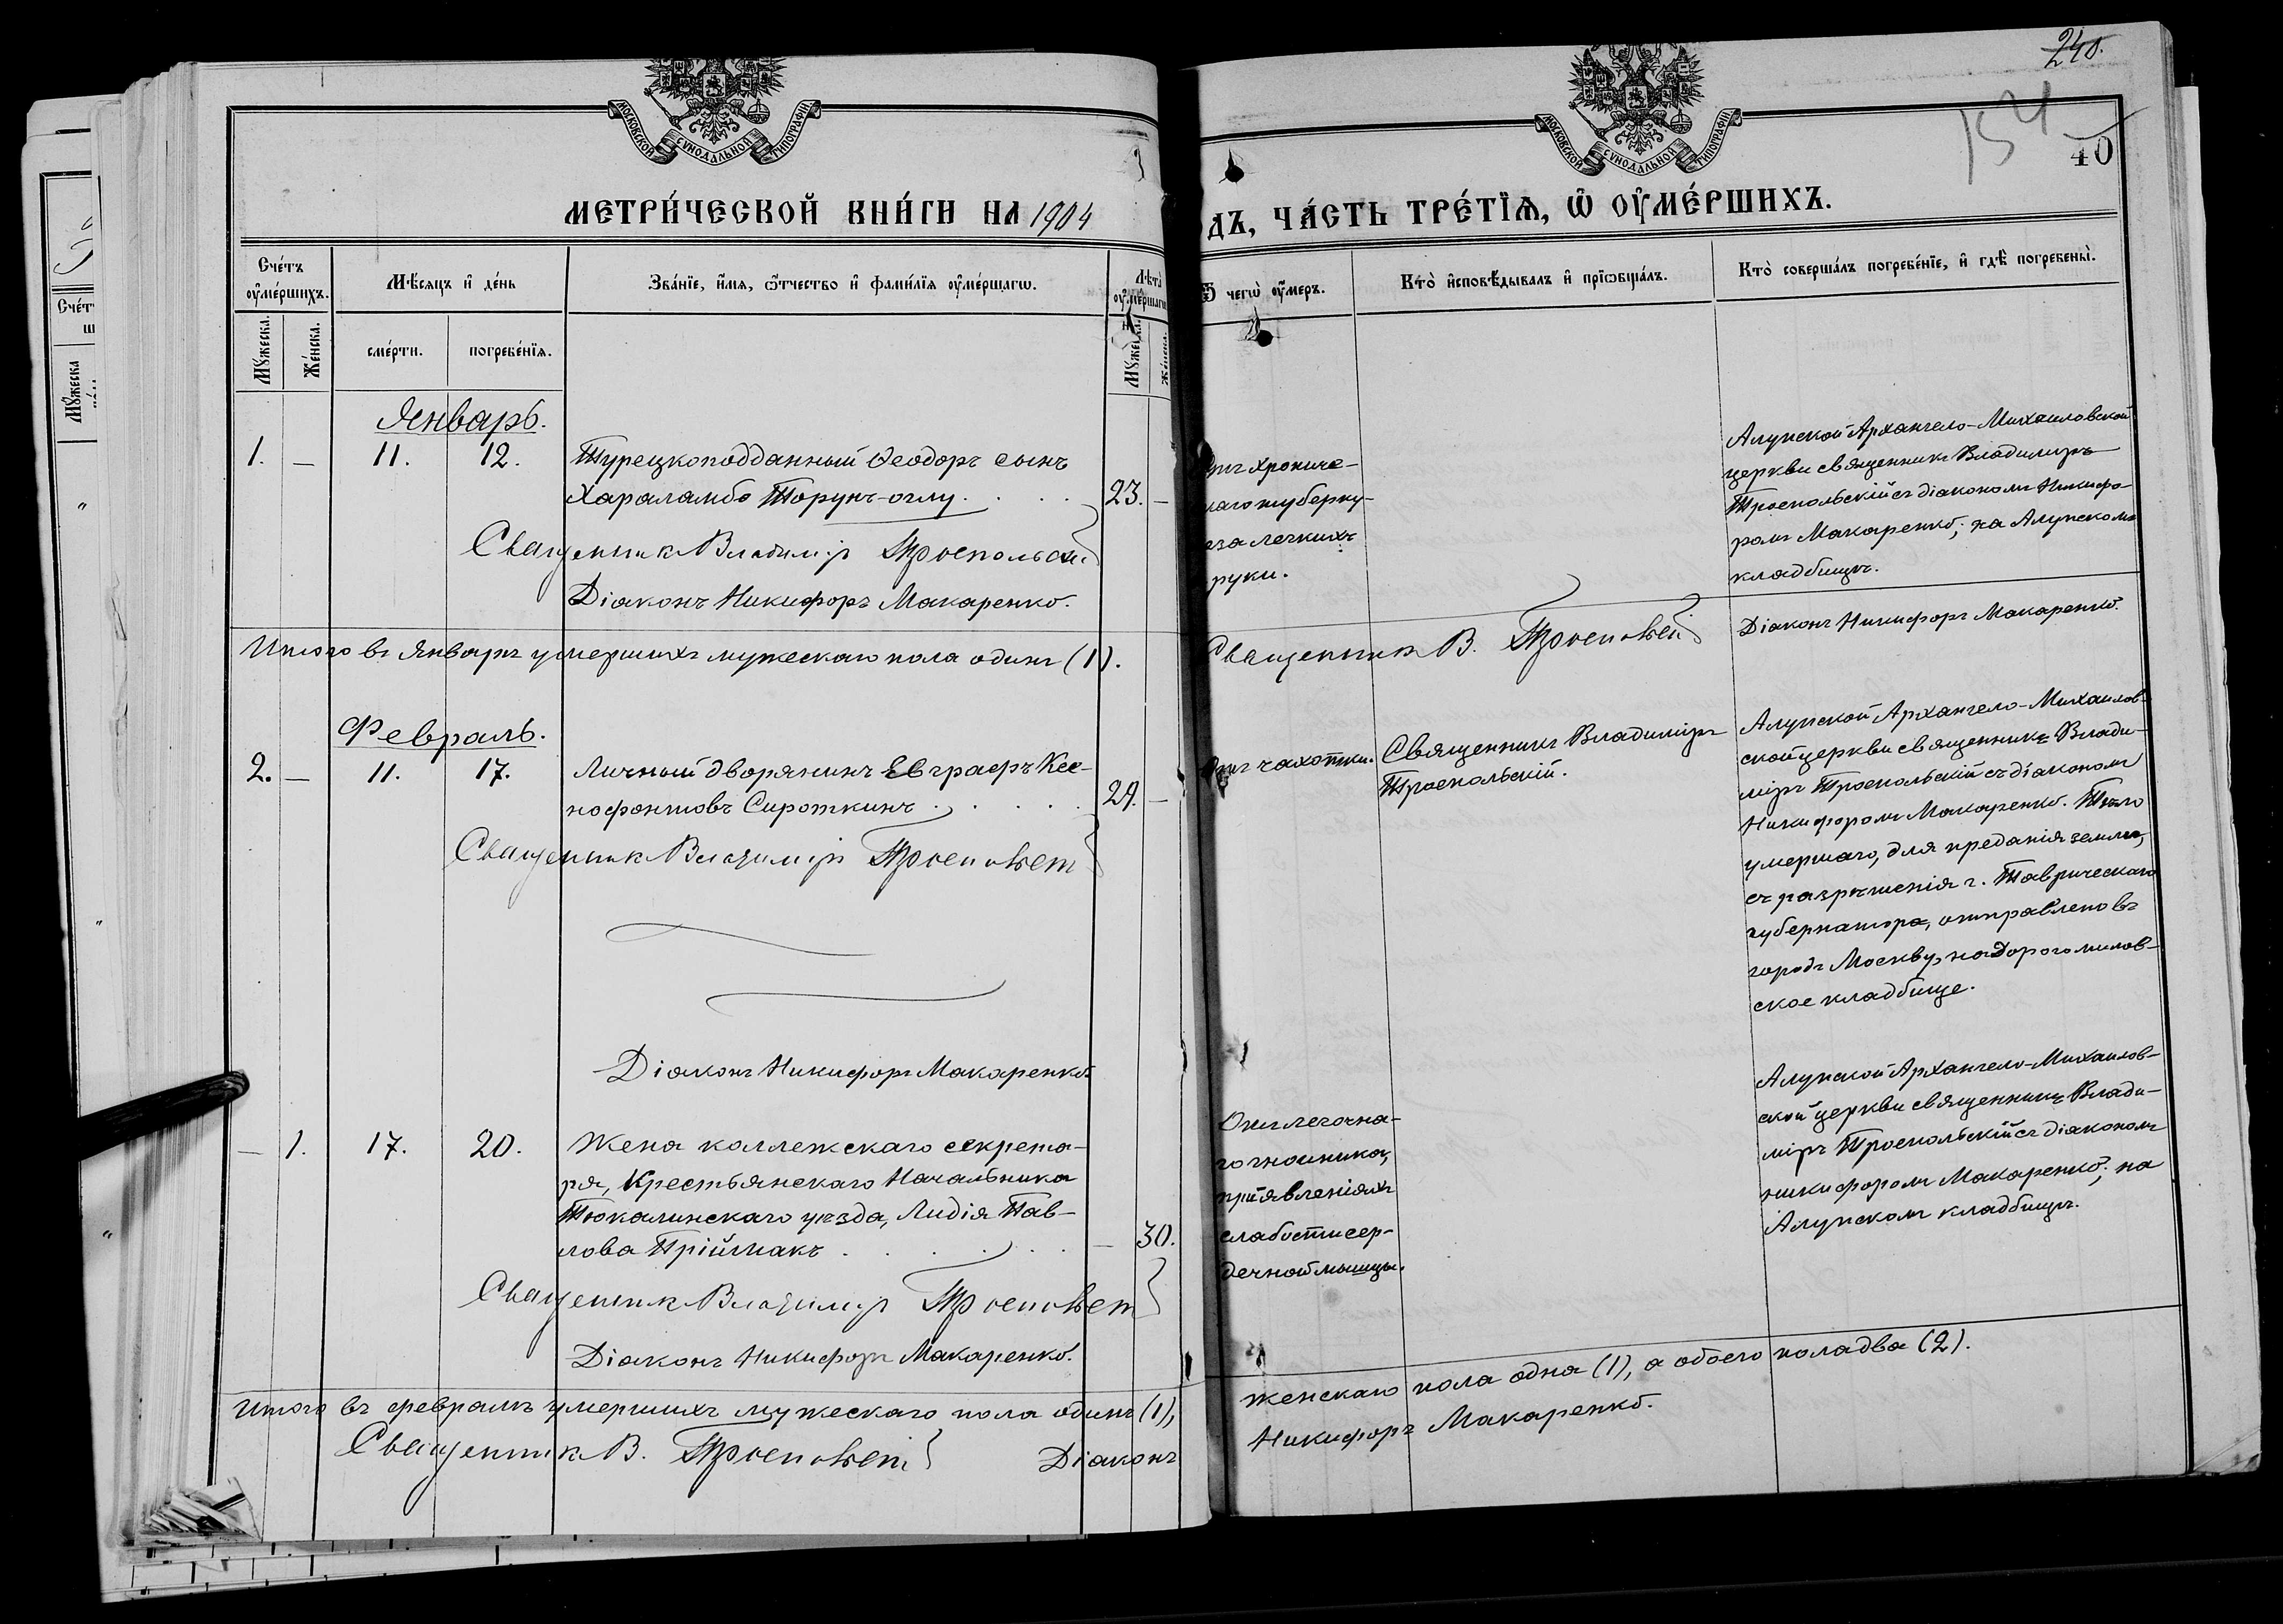 240.
54
40
МОСКОВСКОЙ СѴНОДАЛЬНОЙ ТИПОГРАФІИ
МОСКОВСКОЙ СѴНОДАЛЬНОЙ ТИПОГРАФІИ
МЕТРИ́ЧЕСКОЙ КНИ́ГИ НА 1904
ДЪ, ЧА́СТЬ ТРЕ́ТЇѦ, Ѡ ОУМЕ́РШИХЪ.
Сче́тъ оуме́ршихъ.
Мѣ́сяцъ и де́нь
Зва́нїе, и́мя, ѻ́тчество и фами́лїя оуме́ршагѡ.
Лѣта̀ оуме́ршагѡ
Ѿ чегѡ̀ оу́меръ.
Кто̀ исповѣ́дывалъ и прїѡбща́лъ.
Кто̀ соверша́лъ погребе́нїе, и гдѣ̀ погребены̀.
Мꙋ́жеска.
Же́нска.
сме́рти.
погребе́нїя.
Мꙋ́жеска.
Же́нска.
Январь.
1. — 11. 12. Турецкоподданный Ѳеодоръ сынъ
Хараламбо Торунъ-оглу. 23. —
Священникъ Владиміръ Троепольскій
Діаконъ Никифоръ Макаренко.
Отъ хрониче-
наго туберку-
еза легкихъ
руки.
Алупской Архангело-Михаиловской
церкви священникъ Владиміръ
Троепольскій съ діакономъ Никифо-
ромъ Макаренко; на Алупскомъ
кладбищѣ.
Итого въ Январѣ умершихъ мужескаго пола одинъ (1).
Священникъ В. Троепольскій
Діаконъ Никифоръ Макаренко.
Февраль.
2. — 11. 17. Личный дворянинъ Евграфъ Ксе-
нофонтовъ Сироткинъ 29. —
Священникъ Владиміръ Троепольскій
Діаконъ Никифоръ Макаренко.
Отъ чахотки.
Священникъ Владиміръ
Троепольскій.
Алупской Архангело-Михаилов-
ской церкви священникъ Влади-
міръ Троепольскій съ діакономъ
Никифоромъ Макаренко. Тѣло
умершаго, для преданія землѣ,
съ разрѣшенія г. Таврическаго
губернатора, отправлено въ
городъ Москву, на Дорогомилов-
ское кладбище.
— 1. 17. 20. Жена коллежскаго секрета-
ря, Крестьянскаго Начальника
Тюкалинскаго уѣзда, Лидія Пав-
лова Пріймакъ — 30.
Священникъ Владиміръ Троепольскій
Діаконъ Никифоръ Макаренко.
Отъ легочна-
го гнойника,
при явленіяхъ
слабости сер-
дечной мышцы.
Алупской Архангело-Михаилов-
ской церкви священникъ Влади-
міръ Троепольскій съ діакономъ
Никифоромъ Макаренко; на
Алупскомъ кладбищѣ.
Итого въ февралѣ умершихъ мужескаго пола одинъ (1),
женскаго пола одна (1), а обоего пола два (2).
Священникъ В. Троепольскій Діаконъ
Никифоръ Макаренко.